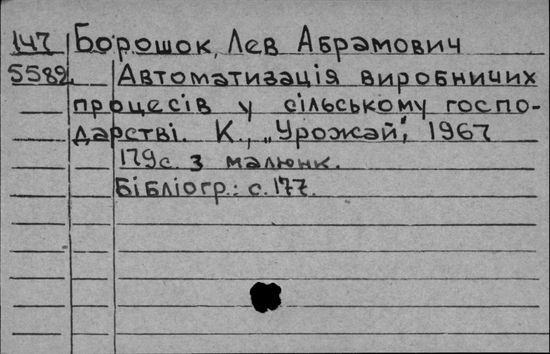 147 Борошок, Лев Абрамович
5589 Автоматизація виробничих
процесів у сільському госпо-
дарстві. К., „Урожай", 1967
179с. з малюнк.
Бібліогр.: с. 177.